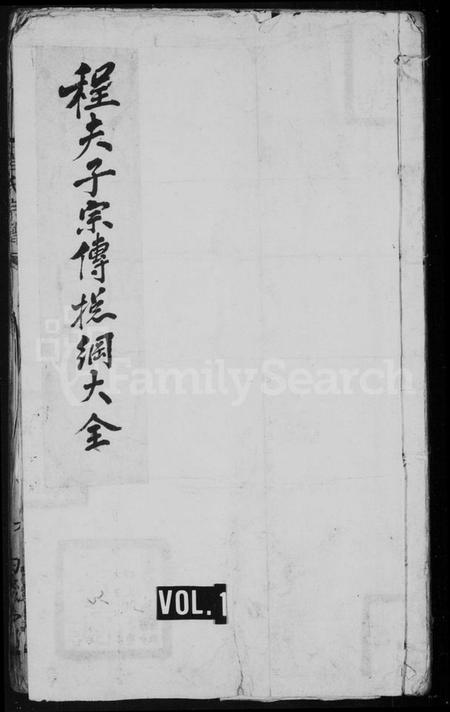 程夫子宗傳揔綱大全
VOL. 1
FamilySearch